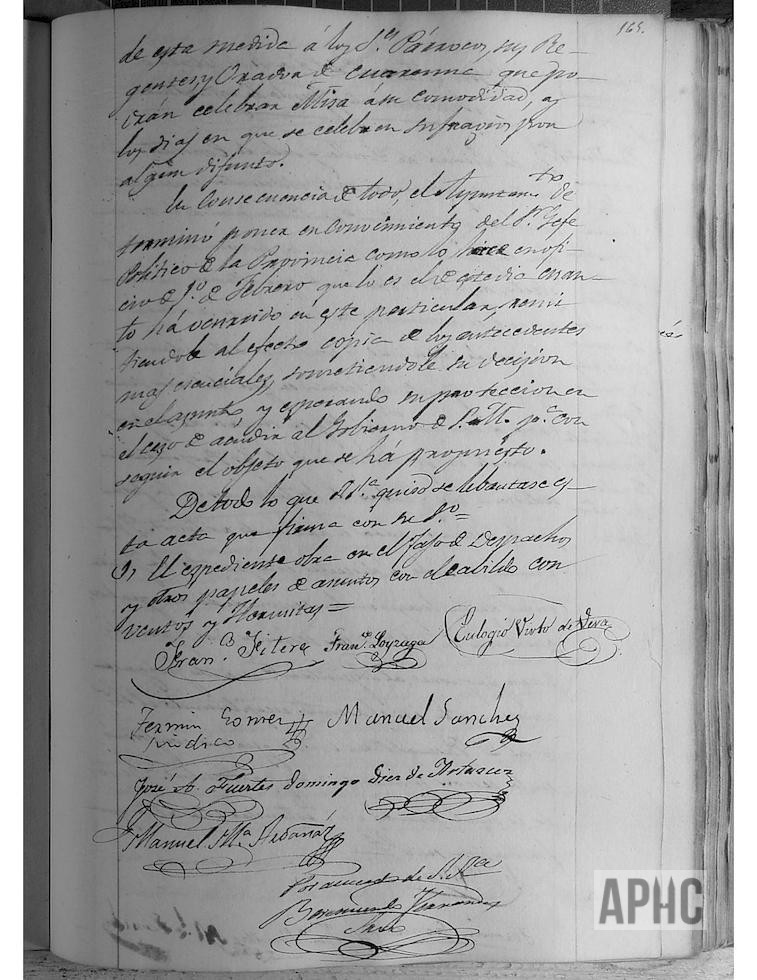 165.
de esta medida á los S.res Párrocos, sus Re-
gentes, y Orador de cuaresma que po-
drán celebrar Misa á su comodidad, y
los dias en que se celebren sufragios por
algun difunto.
En consecuencia de todo, el Ayuntam.to de
terminó poner en conocimiento del S.r Gefe
Politico de la Provincia como lo hace en ofi-
cio de 1.º de Febrero que lo es el de este dia cuan-
to há ocurrido en este particular, remi
tiendole al efecto copia de los antecedentes
mas esenciales, sometiendole su decision
en el asunto, y esperando su proteccion en
el caso de acudir al Gobierno de S. M. p.a con
seguir el objeto que se há propuesto.
De todo lo que S.S.a quiso se lebantase es-
ta acta que firma con su S.rio =
El expediente obra en el Fajo de Despachos
y otros papeles de asuntos con el cabildo con
ventos y Hermitas =
Fran.co Fitero Fran.co Loyzaga Eulogio Virto de Vera
Fermin Gomez Manuel Sanchez
sindico
José A. Fuertes Domingo Diez de
Manuel M.a
Por acuerdo de S.S.a
Srio
APHC